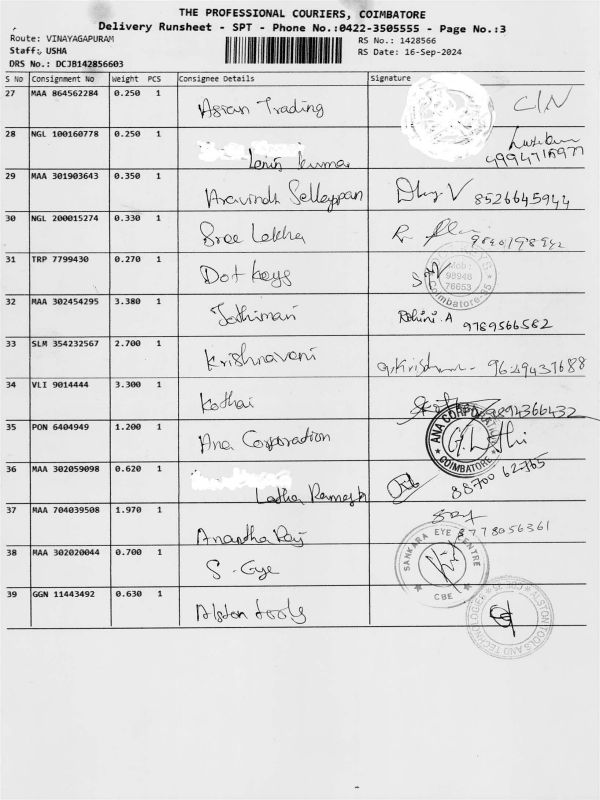 THE PROFESSIONAL COURIERS, COIMBATORE
Delivery Runsheet - SPT - Phone No.:0422-3505555 - Page No.:3
Route: VINAYAGAPURAM
RS No.: 1428566
Staff: USHA
RS Date: 16-Sep-2024
DRS No.: DCJB142856603
S No Consignment No Weight PCS Consignee Details Signature
27 MAA 864562284 0.250 1 Asian Trading CIN
28 NGL 100160778 0.250 1 Lenin Kumar
4994715977
29 MAA 301903643 0.350 1 Aravindh Sellappan V 8526645944
30 NGL 200015274 0.330 1 Sree Lekha
31 TRP 7799430 0.270 1 Dot Keys
DOT KEYS Mob: 98948 76653 Coimbatore-35
32 MAA 302454295 3.380 1 Jothimani Rohini.A 9789566582
33 SLM 354232567 2.700 1 Krishnaveni 9629437688
34 VLI 9014444 3.300 1 Kothai 9894366432
35 PON 6404949 1.200 1 Ana Corporation
ANA CORPORATION COIMBATORE
88700 62765
36 MAA 302059098 0.620 1 Latha Ramesh
37 MAA 704039508 1.970 1 Anantha Raj 8778056361
38 MAA 302020044 0.700 1 S-Eye
SANKARA EYE CENTRE CBE
39 GGN 11443492 0.630 1 Alston tools
ALSTON TOOLS AND TECHNOLOGIES